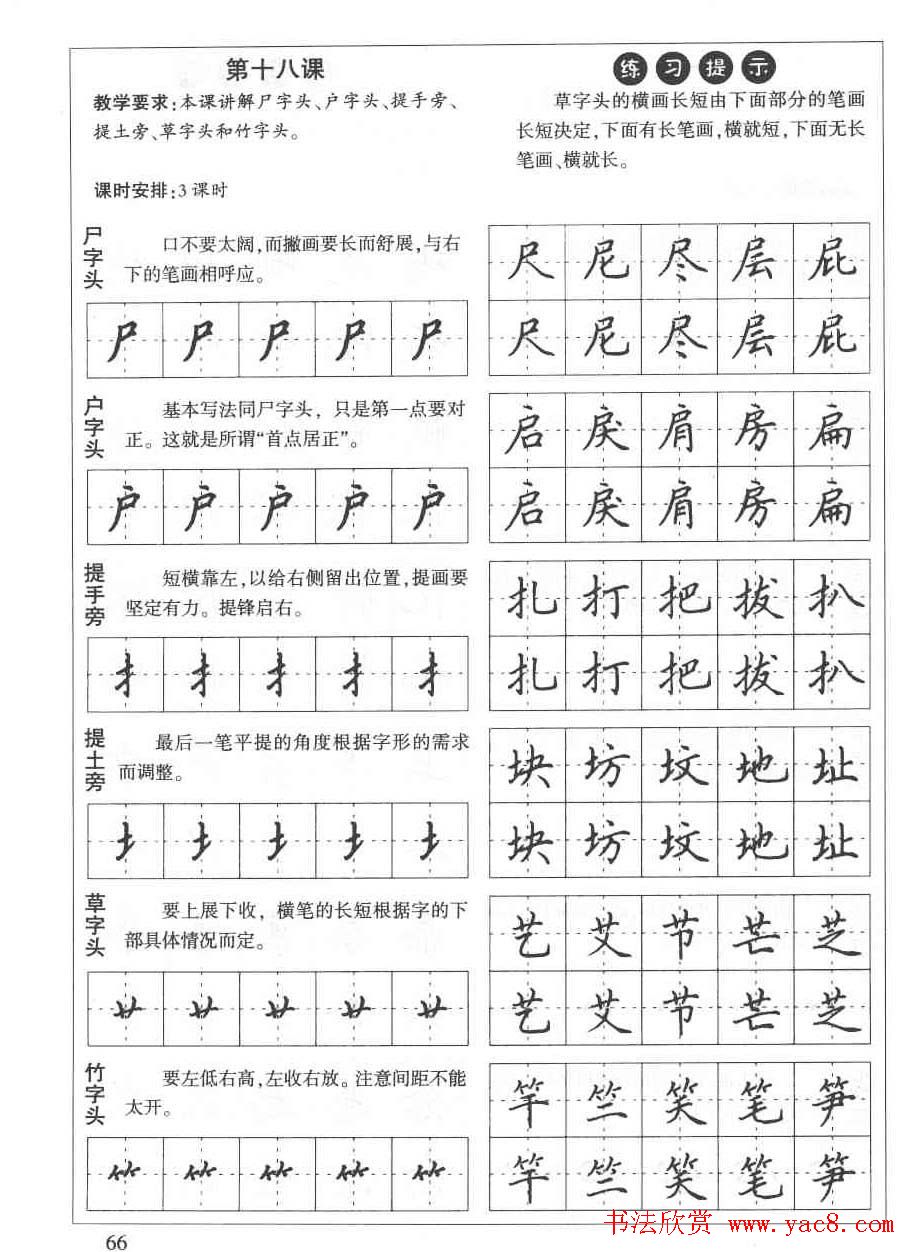 第十八课
教学要求:本课讲解尸字头、户字头、提手旁、
提土旁、草字头和竹字头。
课时安排:3课时
练习提示
草字头的横画长短由下面部分的笔画
长短决定,下面有长笔画,横就短,下面无长
笔画、横就长。
尸字头
口不要太阔,而撇画要长而舒展,与右
下的笔画相呼应。
尸尸尸尸尸
尺尼尽层屁
尺尼尽层屁
户字头
基本写法同尸字头, 只是第一点要对
正。这就是所谓“首点居正”。
户户户户户
启戾肩房扁
启戾肩房扁
提手旁
短横靠左,以给右侧留出位置,提画要
坚定有力。提锋启右。
扌扌扌扌扌
扎打把拔扒
扎打把拔扒
提土旁
最后一笔平提的角度根据字形的需求
而调整。
土土土土土
块坊坟地址
块坊坟地址
草字头
要上展下收, 横笔的长短根据字的下
部具体情况而定。
艹艹艹艹艹
艺艾节芒芝
艺艾节芒芝
竹字头
要左低右高,左收右放。注意间距不能
太开。
⺮⺮⺮⺮⺮
竿竺笑笔笋
竿竺笑笔笋
66
书法欣赏 www.yac8.com